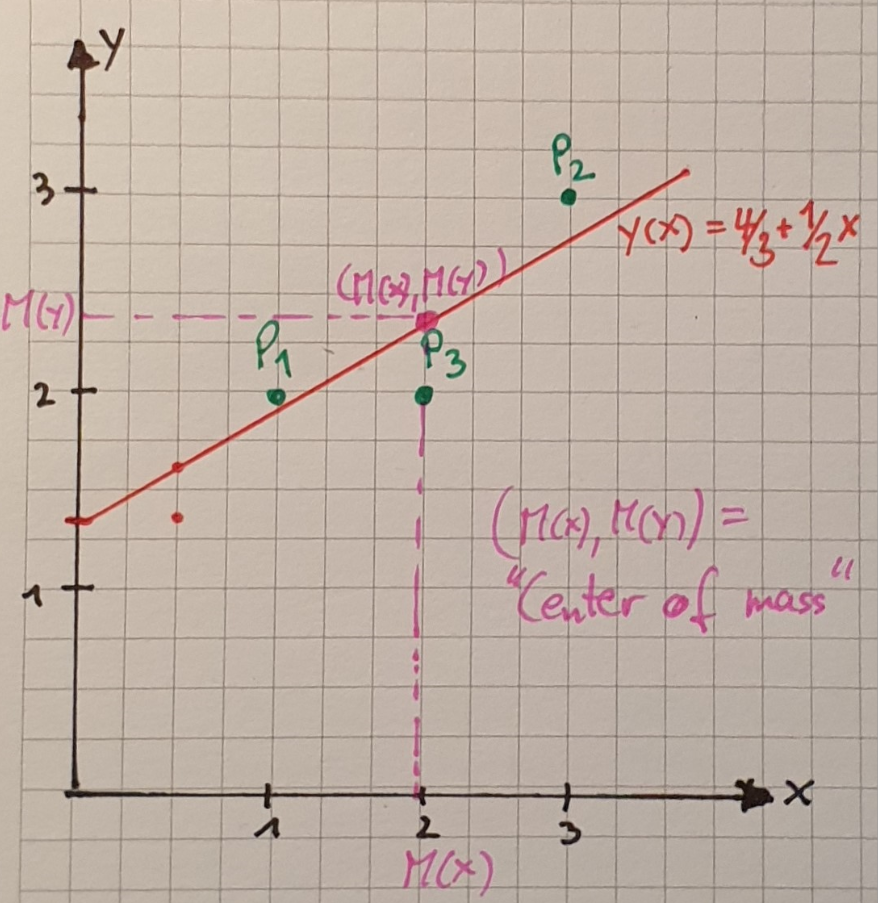 Y
P₂
3
y(x) = 4/3 + 1/2 x
(M(x), M(y))
M(y)
P₁
P₃
2
(M(x), M(y)) =
"Center of mass"
1
x
1 2 3
M(x)